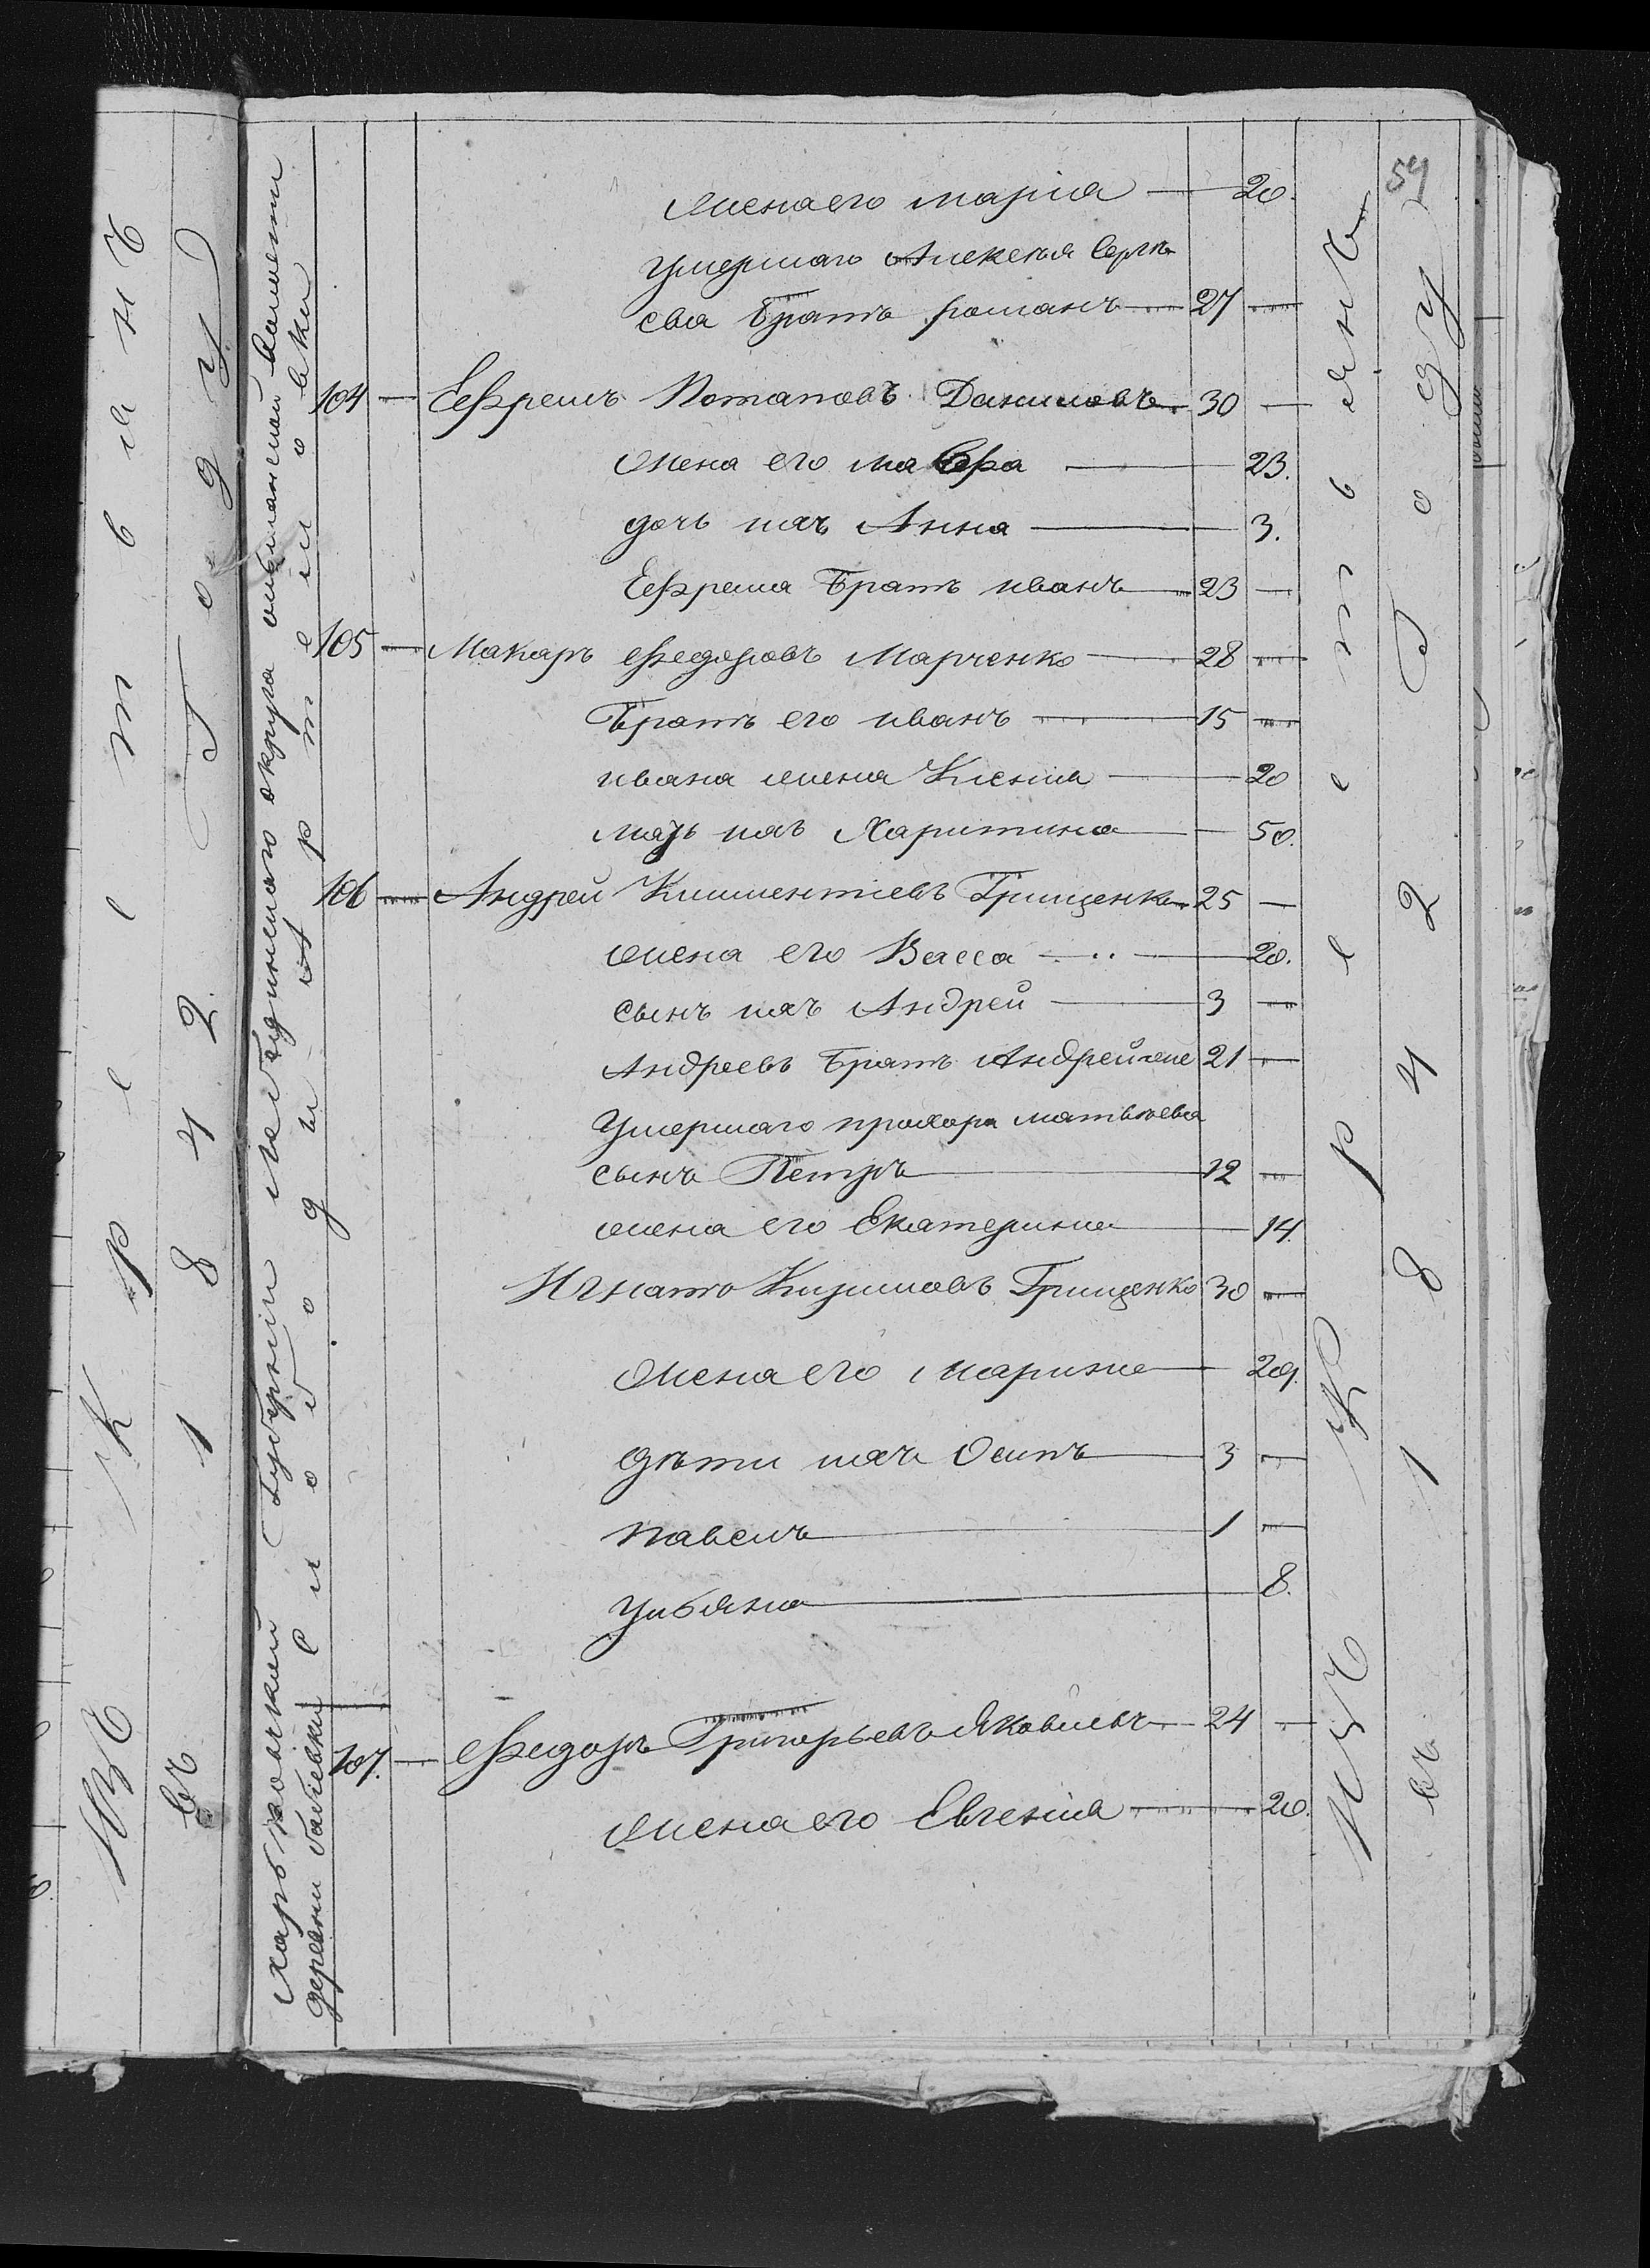 54
жена его марiя — 20.
умершаго Алексѣя Сергѣ
ева Братъ романъ — 27 —
104 — Ефремъ Потаповъ Даниловъ 30 —
жена его мавра — 23.
дочь ихъ Анна — 3.
Ефрема Братъ иванъ — 23 —
105 — Макаръ Федоровъ Марченко — 28 —
Братъ его иванъ — 15 —
ивана жена Ксенiя — 20
мать ихъ Харитина — 50.
106 — Андрей Климентiевъ Грищенко 25 —
жена его Васса — 20.
сынъ ихъ Андрей — 3 —
Андреевъ Братъ Андрей же 21 —
умершаго прохора матвѣева
сынъ Петръ — 12 —
жена его Екатерина — 14.
Игнатъ Кириловъ Грищенко 30 —
жена его марина — 29.
дѣти ихъ Осипъ — 3 —
павелъ — 1 —
ульяна — 8.
107. — Федоръ Григорьевъ Яковлевъ — 24 —
жена его Евгенiя — 20.
харьковской Губернiи Лебединскаго округа волости
деревни Слободы Артемовки
Изъ Крестьянъ
въ 1842 Году
Изъ К р е с т
въ 1842 Году